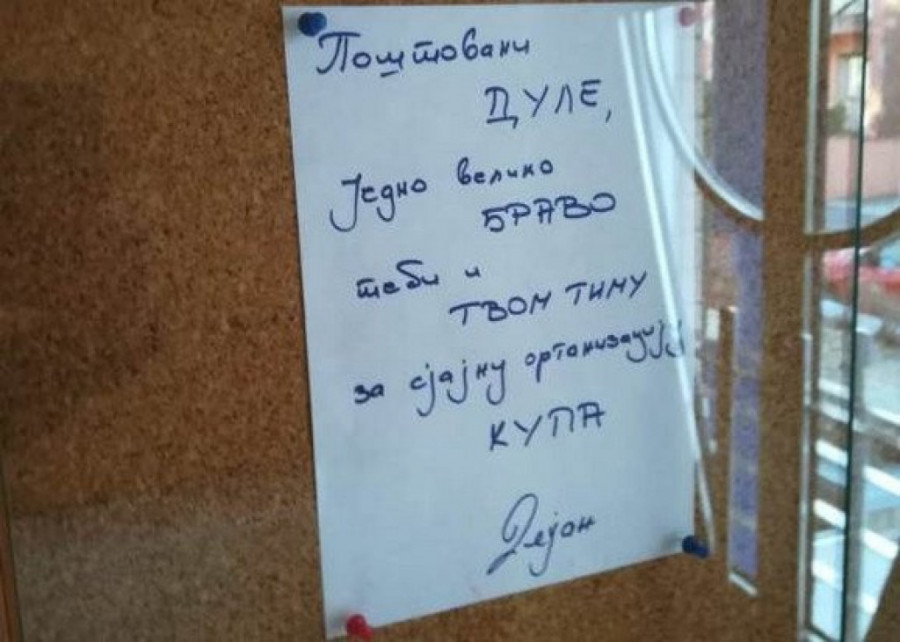 Поштовани
ДУЛЕ,
Једно велико
БРАВО
теби и
ТВОМ ТИМУ
за сјајну организацију
КУПА
Дејан